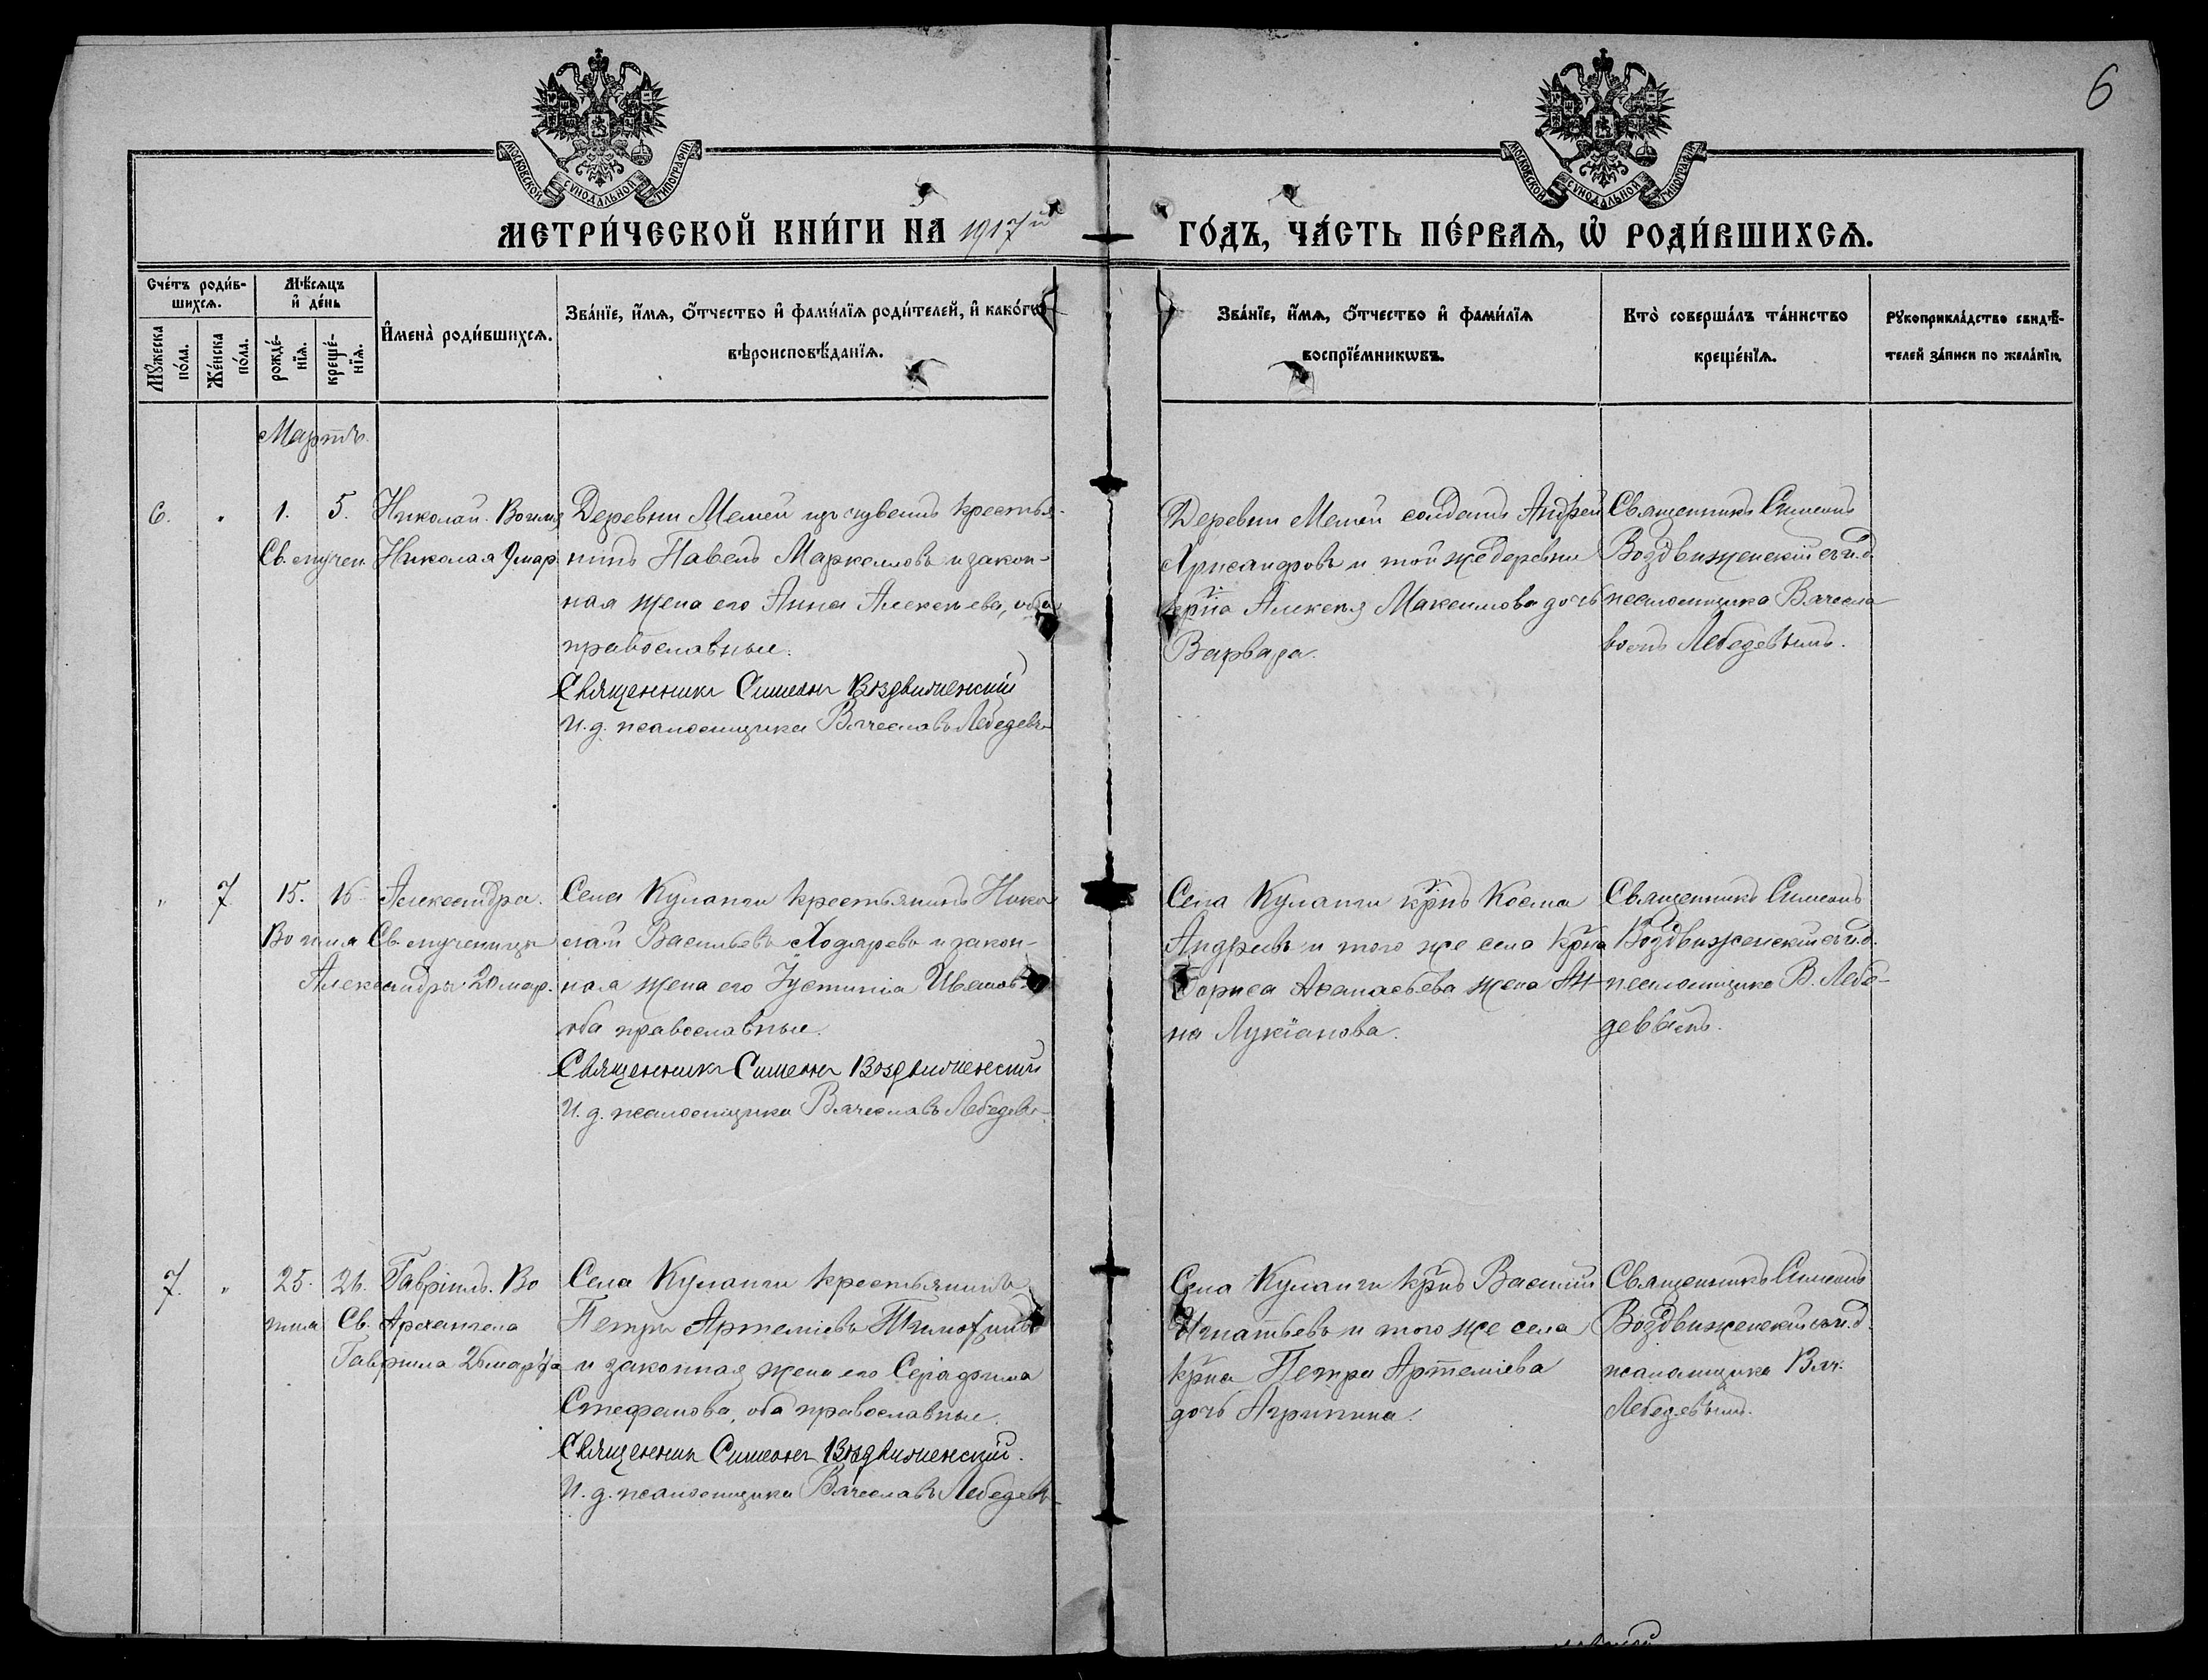 6
МОСКОВСКОЙ СѴНОДАЛЬНОЙ ТИПОГРАФІИ
МОСКОВСКОЙ СѴНОДАЛЬНОЙ ТИПОГРАФІИ
МЕТРИ́ЧЕСКОЙ КНИ́ГИ НА 1917й
ГО́ДЪ, ЧА́СТЬ ПЕ́РВАѦ, Ѽ РОДИ́ВШИХСѦ.
Сче́тъ роди́в-
шихсѧ.
Мꙋ́жеска по́ла.
Же́нска по́ла.
Мѣ́сѧцъ
и҆ де́нь
рожде́-
нїѧ.
креще́-
нїѧ.
И҆мена̀ роди́вшихсѧ.
Зва́нїе, и҆́мѧ, ѻ҆́тчество и҆ фами́лїѧ роди́телей, и҆ како́гѡ
вѣроисповѣ́данїѧ.
Зва́нїе, и҆́мѧ, ѻ҆́тчество и҆ фами́лїѧ
воспрїе́мникѡвъ.
Кто̀ соверша́лъ та́инство
креще́нїѧ.
Рꙋкоприкла́дство свидѣ́-
телей за́писи по жела́нїю.
Мартъ.
6. " 1. 5. Николай. Во имя
Св. мучен. Николая 9 мар.
Деревни Мемей изъ чувашъ крестья-
нинъ Павелъ Маркелловъ и закон-
ная жена его Анна Алексѣева, оба
православные.
Священникъ Симеонъ Воздвиженскій
И. д. псаломщика Вячеславъ Лебедевъ
Деревни Мемей солдатъ Андрей
Александровъ и той же деревни
кр-на Алексѣя Максимова дочь
Варвара.
Священникъ Симеонъ
Воздвиженскій съ и. д.
псаломщика Вячесла
вомъ Лебедевымъ.
" 7 15. 16 Александра.
Во имя Св. мученицы
Александры 20 мар.
Села Куланги крестьянинъ Нико
лай Васильевъ Ходяревъ и закон-
ная жена его Іустинія Иванов
оба православные.
Священникъ Симеонъ Воздвиженскій
И. д. псаломщика Вячеславъ Лебедевъ.
Села Куланги кр-нъ Косма
Андреевъ и того же села кр-на
Бориса Аѳанасьева жена Ан-
на Лукіанова.
Священникъ Симеонъ
Воздвиженскій съ и. д.
псаломщика В. Лебе-
девымъ.
7. " 25. 26. Гавріилъ. Во
имя Св. Архангела
Гавріила 26 марта
Села Куланги крестьянинъ
Петръ Артеміевъ Тимоѳеевъ
и законная жена его Серафима
Стефанова, оба православные.
Священникъ Симеонъ Воздвиженскій.
И. д. псаломщика Вячеславъ Лебедевъ
Села Куланги кр-нъ Василій
Игнатьевъ и того же села
кр-на Петра Артеміева
дочь Агрипина.
Священникъ Симеонъ
Воздвиженскій съ и. д.
псаломщика Вяч.
Лебедевымъ.